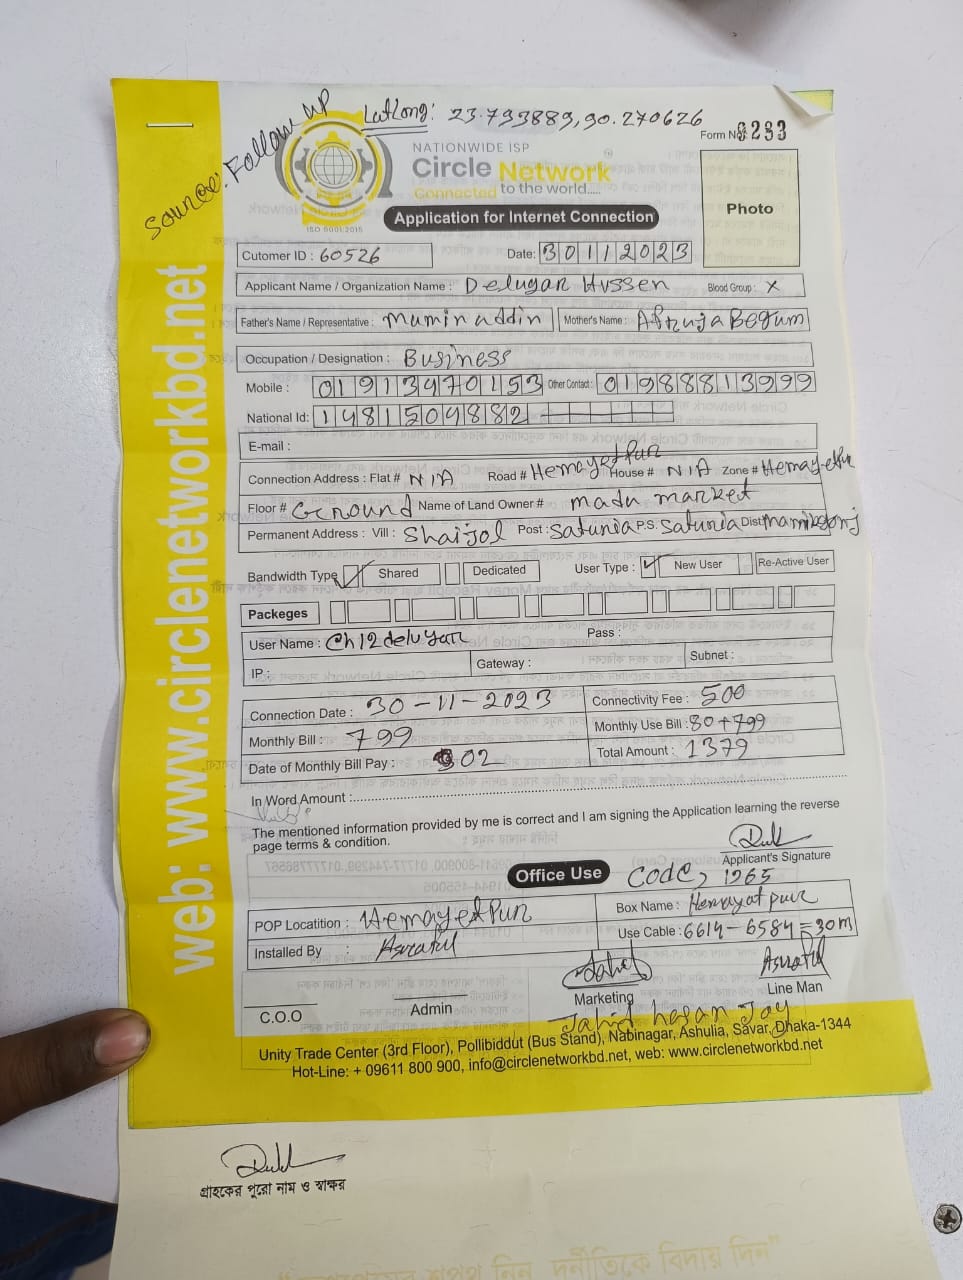 Source: Follow up
LatLong: 23.793889,90.270626
Form No 233
NATIONWIDE ISP
Circle Network
Connected to the world.....
ISO 9001:2015
Application for Internet Connection
Photo
Cutomer ID : 60526 Date: 30112023
Applicant Name / Organization Name : Deluyar Hussen Blood Group : X
Father's Name / Representative : Muminuddin Mother's Name : Afruja Begum
Occupation / Designation : Business
Mobile : 01913470153 Other Contact : 01988813999
National Id: 1481509882
E-mail :
Connection Address : Flat # N/A Road # Hemayetpur House # N/A Zone # Hemayetpur
Floor # Ground Name of Land Owner # madu market
Permanent Address : Vill : Shaijol Post : Saturia P.S. Saturia Dist
Bandwidth Type Shared Dedicated User Type : New User Re-Active User
Packeges
User Name : Ch12deluyar Pass :
IP : Gateway : Subnet :
Connection Date : 30-11-2023 Connectivity Fee : 500
Monthly Bill : 799 Monthly Use Bill : 80+799
Date of Monthly Bill Pay : 02 Total Amount : 1379
In Word Amount :
The mentioned information provided by me is correct and I am signing the Application learning the reverse
page terms & condition.
Applicant's Signature
Office Use Code, 1265
POP Locatition : Hemayetpur Box Name : Hemayatpur
Installed By : Asraful Use Cable : 6614-6584=30m
Jahid Asraful
C.O.O Admin Marketing Line Man
Jahid hasan Joy
Unity Trade Center (3rd Floor), Pollibiddut (Bus Stand), Nabinagar, Ashulia, Savar, Dhaka-1344
Hot-Line: + 09611 800 900, info@circlenetworkbd.net, web: www.circlenetworkbd.net
web: www.circlenetworkbd.net
গ্রাহকের পুরো নাম ও স্বাক্ষর
নিন দুর্নীতিকে বিদায় দিন"